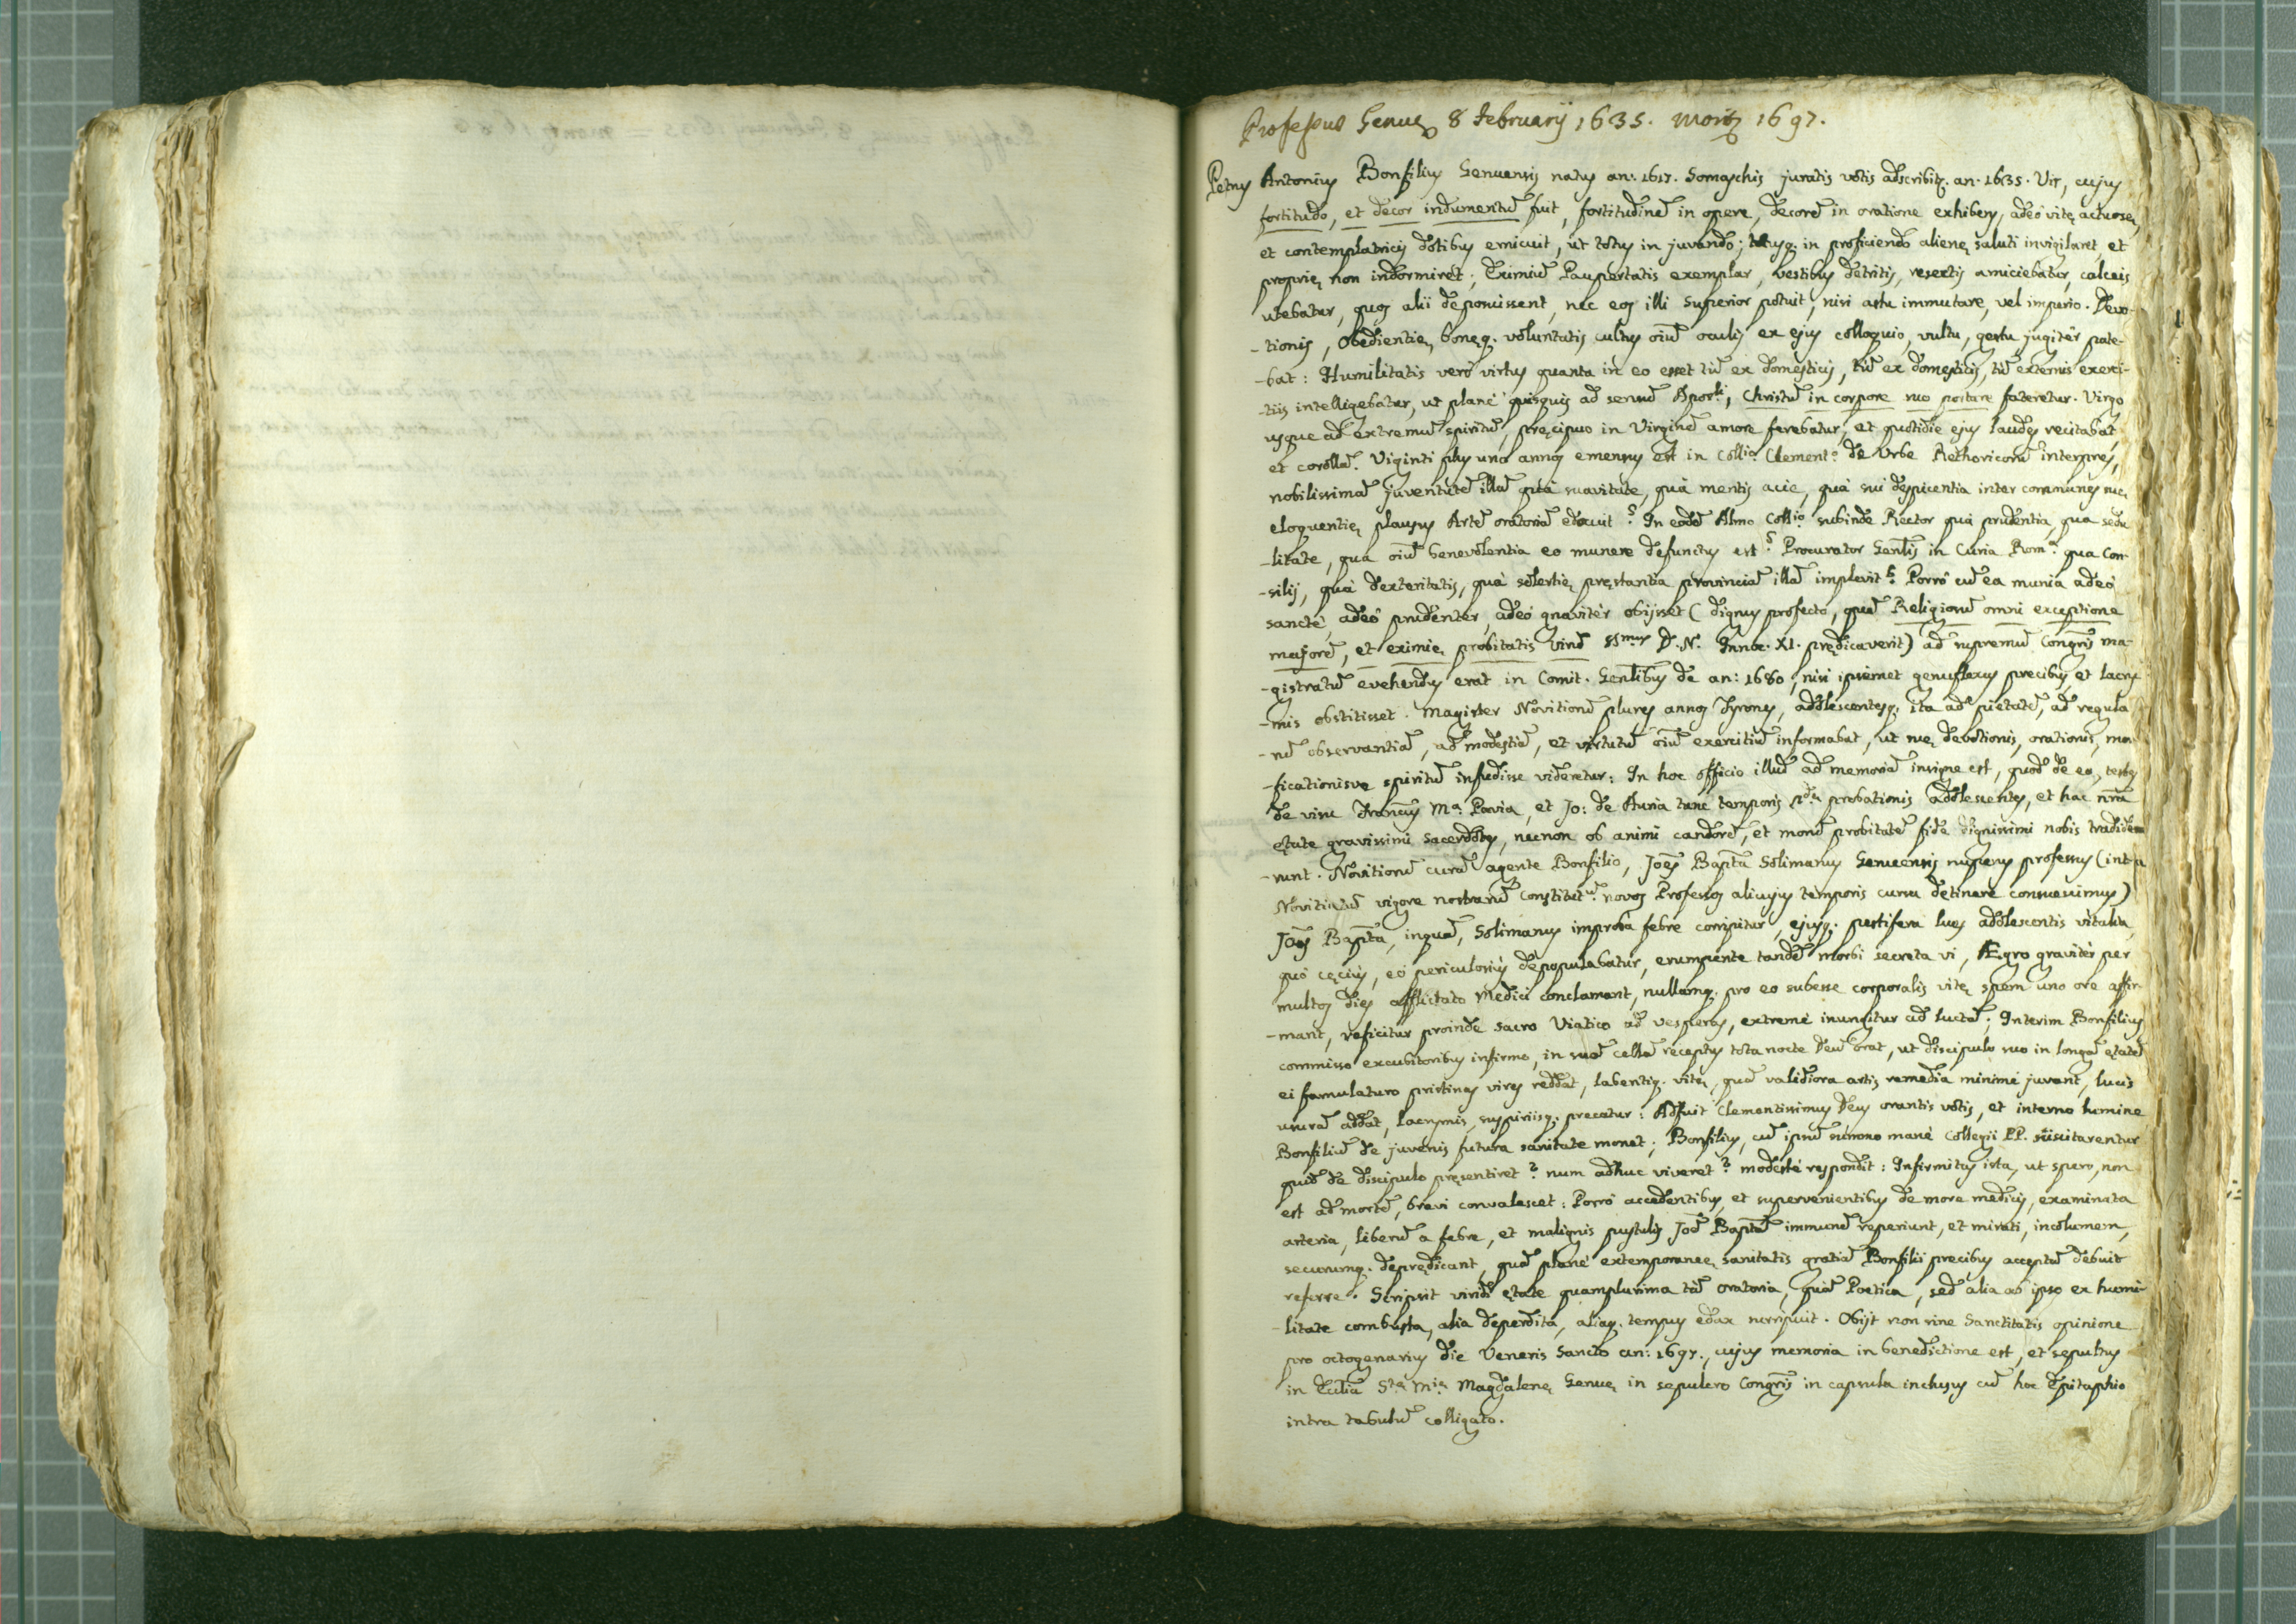 Professus Genuę 8 Februarij 1635. moritꝰ 1697.
Petrus Antonius Bonfilius Genuensis natus an: 1617. Somaschis juratis votis adscribitꝰ. an. 1635. Vir, cujus
fortitudo, et decor indumentũ fuit, fortitudinẽ in opere, decorẽ in oratione exhibens, adeò vitę actuosę,
et contemplatricis dotibus emicuit, ut totus in juvando; totusq. in proficiendo alienę saluti invigilaret, et
proprię non indormiret; Eximiũ Paupertatis exemplar, vestibus detritis, resertis amiciebatur, calceis
utebatur, quos alii deposuissent, nec eos illi superior potuit, nisi astu immutare, vel imperio. Devo-
-tionis, Obedientię, bonęq. voluntatis cultus oiũ oculis ex ejus colloquio, vultu, gestu jugitèr pate-
-bat: Humilitatis verò virtus quanta in eo esset tũ ex domesticis, tũ ex domesticis, tũ externis exerci-
-tiis intelligebatur, ut planè quisquis ad sensũ Apostli, Christũ in corpore suo portare fateretur. Virgo
usque ad extremũ spiritũ, pręcipuo in Virginẽ amore ferebatur, et quotidie ejus laudes recitabat
et corollã. Viginti plus uno annos emensus est in Collio. Clemento. de Urbe Rethoricorũ interpres,
nobilissimã juventutẽ illã quà suavitate, quà mentis acie, quà sui despicentia inter communes suę
eloquentię plausus Artẽ oratoriã edocuit? In eodẽ Almo Collio. subinde Rector quà prudentia, qua sedu
-litate, qua oiũ benevolentia eo munere defunctus est? Procurator Genlis in Curia Roma. qua Con-
-silij, quà dexteritatis, quà solertię pręstantia provinciã illã implevit? Porrò cũ ea munia adeò
sanctè, adeò prudenter, adeò gnavitèr obijsset (dignus profecto, quẽ Religiosũ omni exceptione
majorẽ, et eximię probitatis virũ SSmus D. N. Innoc. XI. prędicaverit) ad supremũ Congrñis ma-
-gistratũ evehendus erat in Comit. Genlibus de an: 1680, nisi ipsemet genuflexus precibus, et lacry
-mis obstitisset. Magister Novitiorũ plures annos Tyrones, adolescentesq. ita ad pietatẽ, ad regula
-rẽ observantiã, ad modestiã, et virtutũ oiũ exercitiũ informabat, ut suę devotionis, orationis, mor
-ficationisve spiritũ infudisse videretur: In hoc officio illud ad memoriã insigne est, quod de eo, testes
de visu Francus Ma. Pavia, et Jo: de Auria tunc temporis 2dæ probationis adolescentes, et hac nrã
ętate gravissimi sacerdotes, necnon ob animi candorẽ, et morũ probitatẽ fide dignissimi nobis tradide
-runt. Novitiorũ curã agente Bonfilio, Joẽs Baptã Solimanus Genuensis nuperus professus (intra
Novitiatũ vigore nostrarũ Constitutũ. novos Professos alicujus temporis cursu detinere consuevimus)
Joẽs Baptã, inquã, Solimanus improba febre corripitur, ejusq. pestifera lues adolescentis vitalia,
quò cęcius, eò periculosius depopulabatur, erumpente tandẽ morbi secreta vi, Ægro gravitèr per
multos dies afflictato Medici conclamant, nullamq. pro eo subesse corporalis vitę spem uno ore affir-
-mant, reficitur proinde sacro Viatico ad vesperas, extremè inungitur ad luctã; Interim Bonfilius
commisso excubitoribus infirmo, in suã cellã receptus tota nocte Deũ orat, ut discipulo suo in longã ętatẽ
ei famulaturo pristinas vires reddat, labentiq. vitę, quã validiora artis remedia minimè juvant, lucis
usurã addat, lacrymis, suspiriisq. precatur: Adfuit Clementissimus Deus orantis votis, et interno lumine
Bonfiliũ de juvenis futura sanitate monet; Bonfilius, cũ ipsũ summo manè Collegii PP. sciscitarentur
quid de discipulo pręsentiret? num adhuc viveret? modestè respondit: Infirmitas ista, ut spero, non
est ad mortẽ, brevi convalescet: Porrò accedentibus, et supervenientibus de more medicis, examinata
arteria, liberũ a febre, et malignis pustulis Joẽ Baptã immunẽ reperiunt, et mirati, incolumem,
securumq. deprędicant, quã planè extemporaneę sanitatis gratiã Bonfilii precibus acceptã debuit
referre. Scripsit viridi ętate quamplurima tũ Oratoria, quã Poetica, sed alia ab ipso ex humi-
-litate combusta, alia deperdita, aliaq. tempus edax surripuit. Obijt non sine Sanctitatis opinione
pro octogenarius die Veneris Sancto an: 1697., cujus memoria in benedictione est, et sepultus
in Ecclia Stę Mię Magdalenę Genuę in sepulcro Congrñis in capsula inclusus cũ hoc Epitaphio
intra tabulũ colligato.